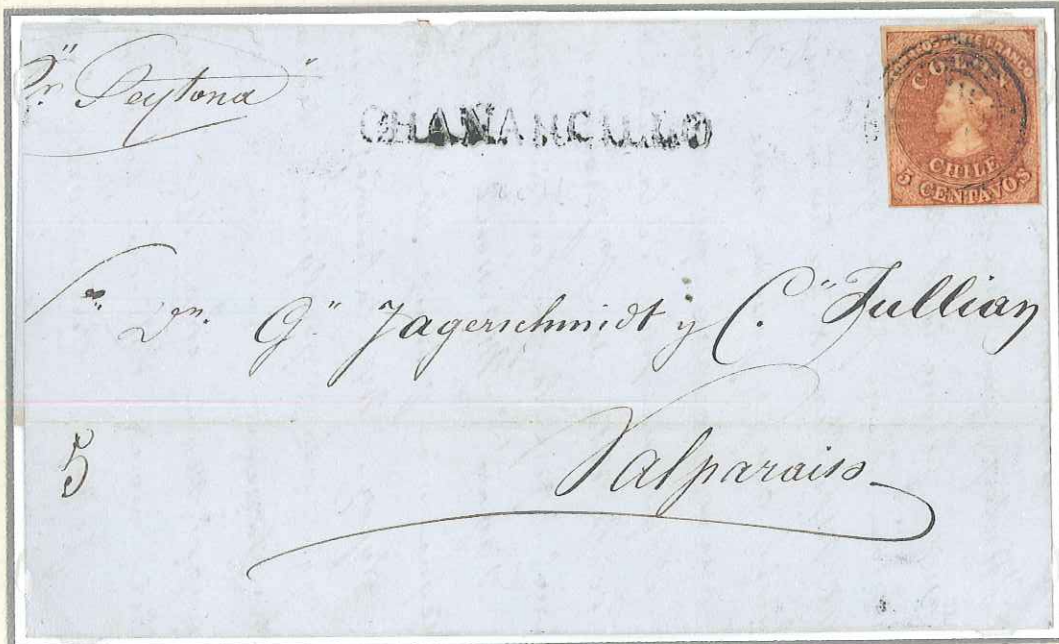 Pr "Peytona"
CHANARCILLO
CORREOS PORTE FRANCO
COLON
CHILE
5 CENTAVOS
Sr. Dn. G" Jagerschmidt y C." Jullian
Valparaiso
5